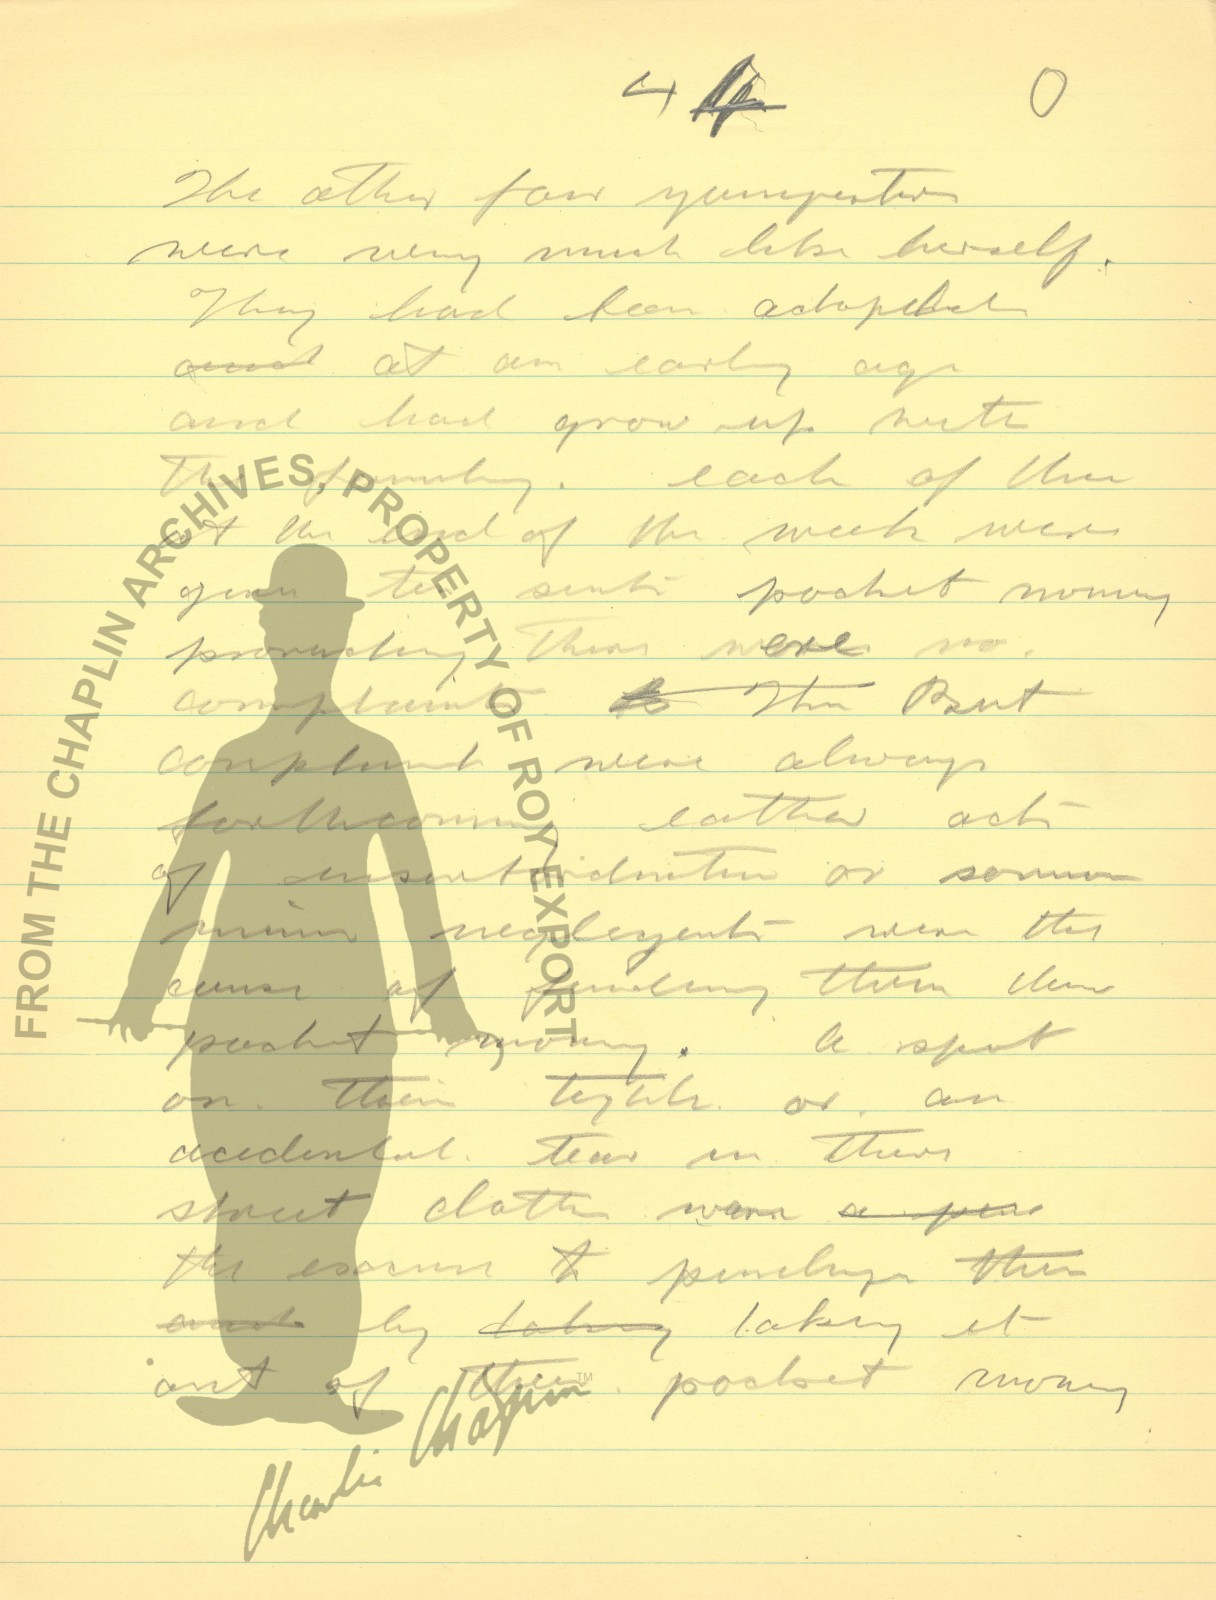 4
0
The other four youngesters
were very much like herself.
They had been adopted
and at an early age
and had grow up with
the family. each of them
at the end of the week were
given ten sents pocket money
providing there were no
complaints The But
complaint were always
forthcoming eather acts
of insubordination or some
minor neglegents were the
cause of them there
pocket money. A spot
on their tights or an
acedental tear in there
street clothes were a
the excuse to penelize them
and by taking taking it
out of there pocket money
FROM THE CHAPLIN ARCHIVES, PROPERTY OF ROY EXPORT
Charlie Chaplin™